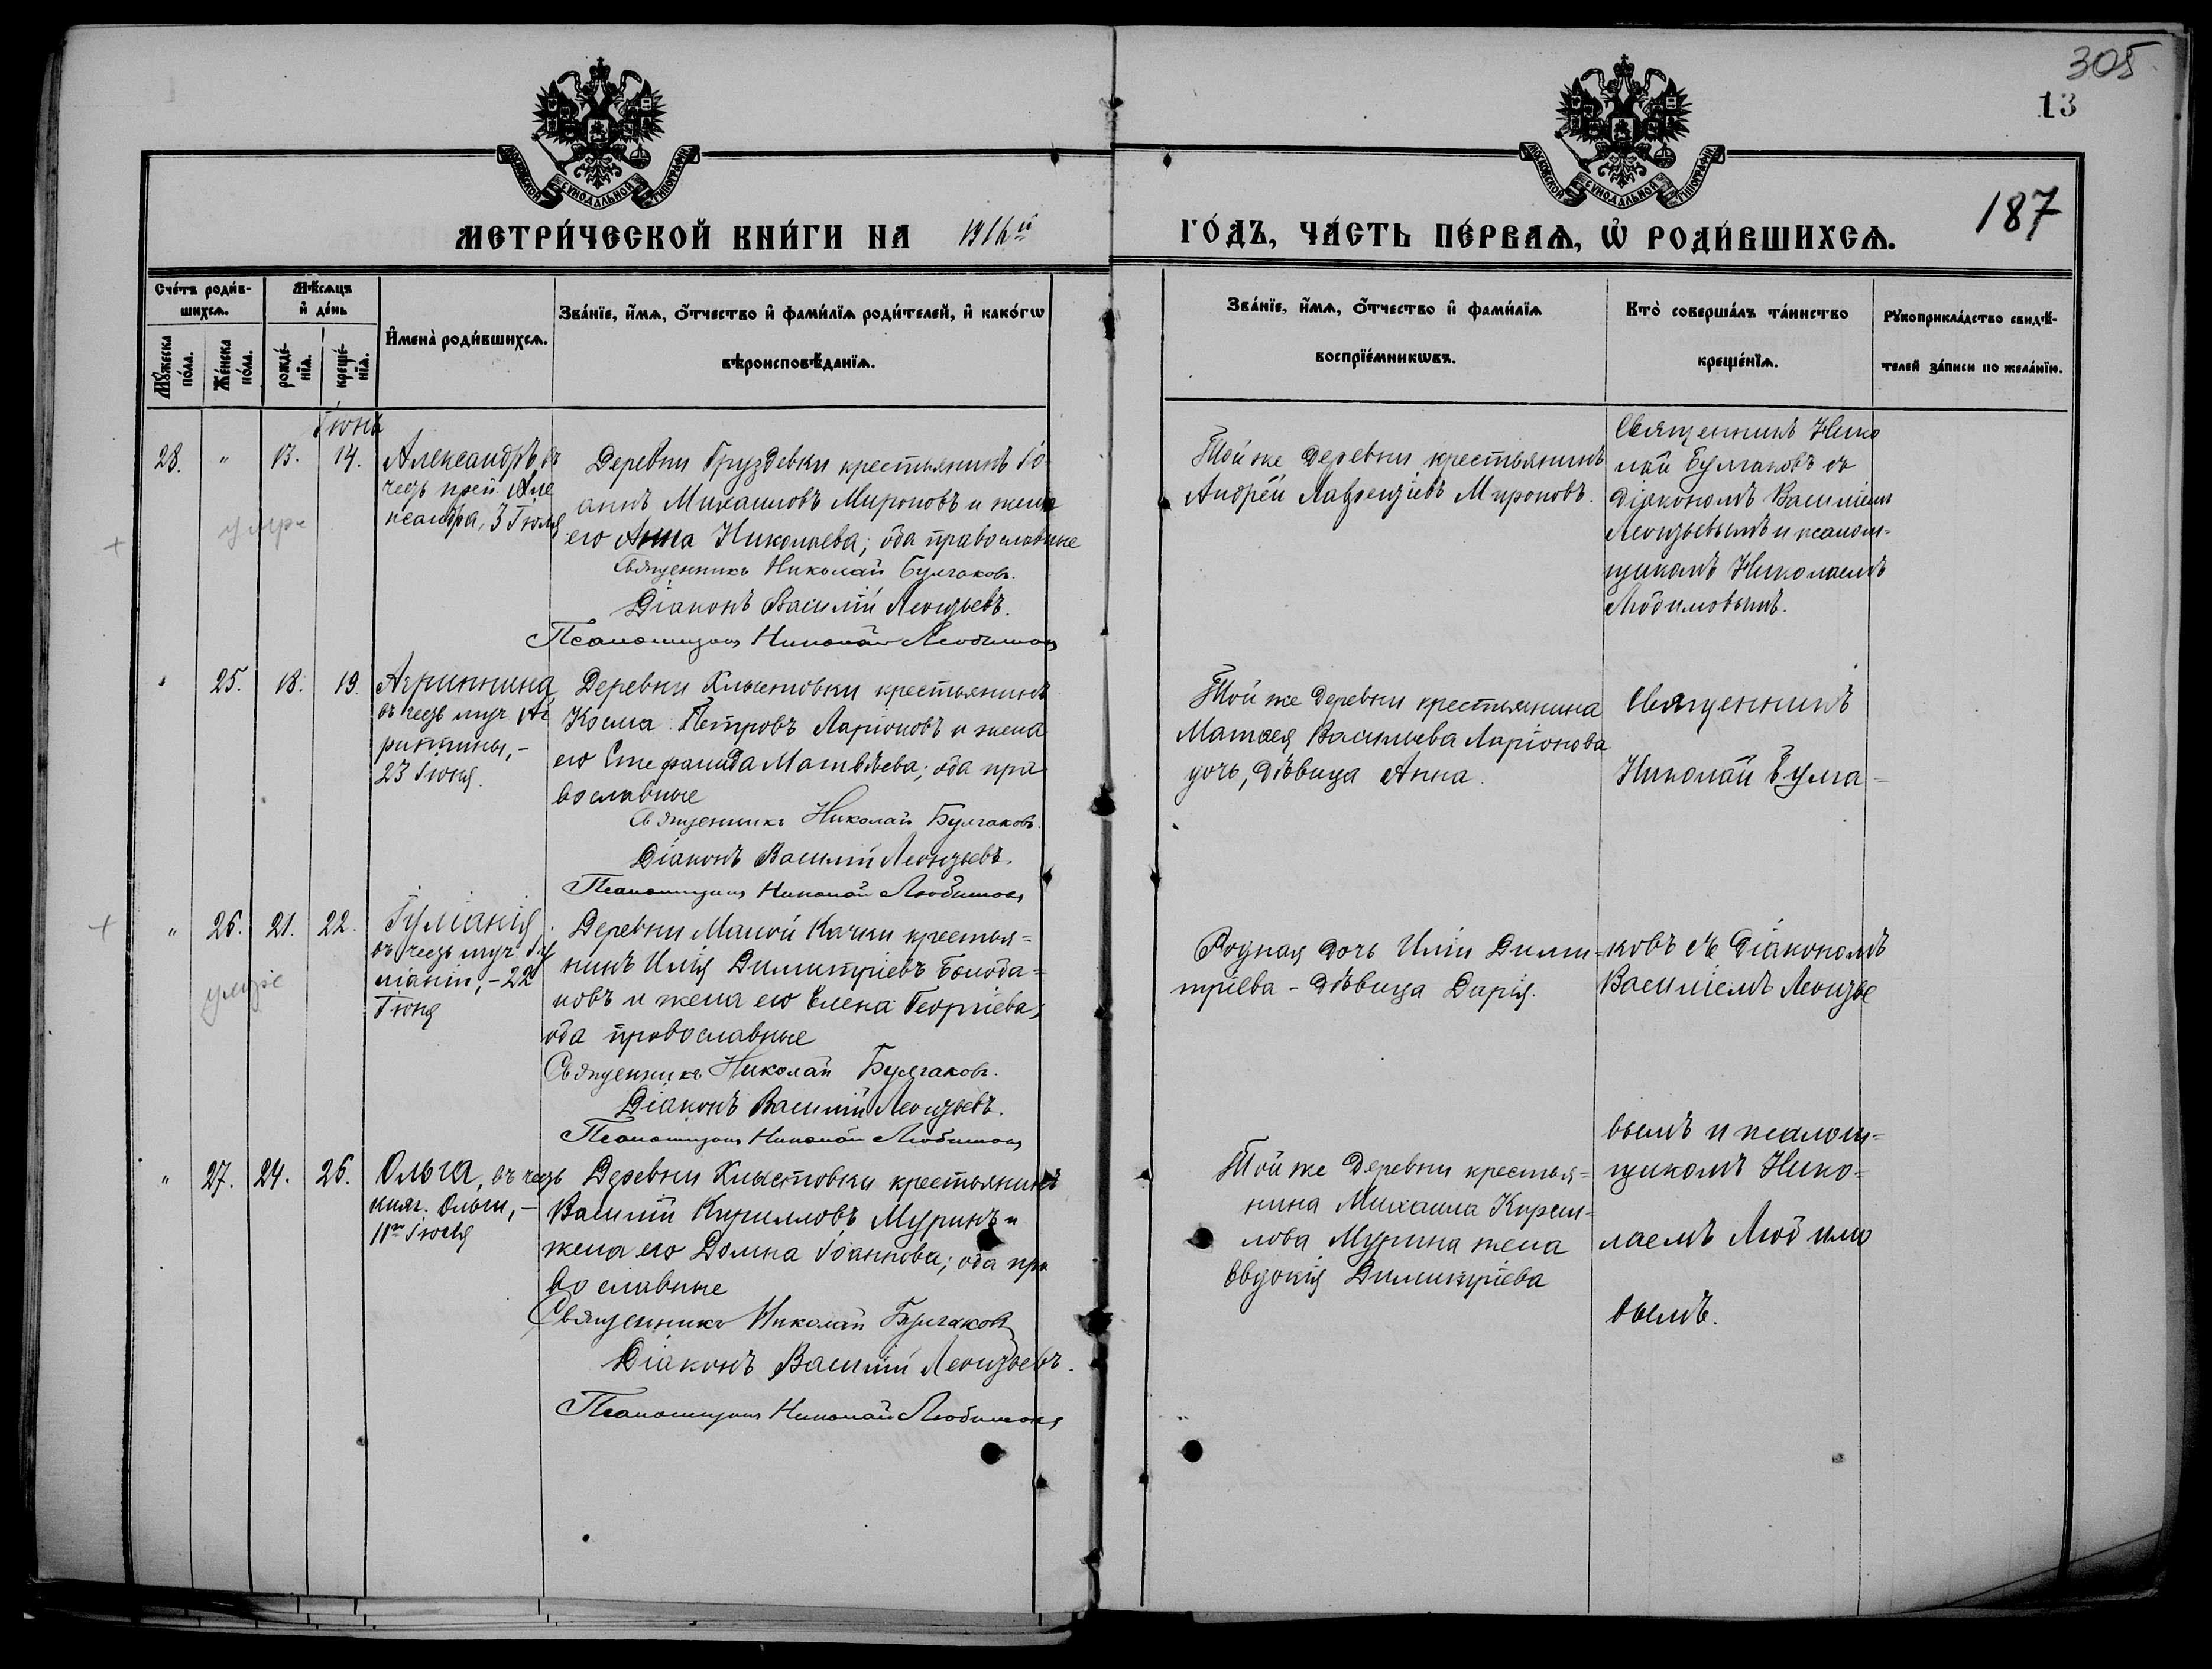 305
13
187
МОСКОВСКОЙ СУНОДАЛЬНОЙ ТИПОГРАФІИ
МОСКОВСКОЙ СУНОДАЛЬНОЙ ТИПОГРАФІИ
МЕТРИ́ЧЕСКОЙ КНИ́ГИ НА 1916 й
ГО́ДЪ, ЧА́СТЬ ПЕ́РВАѦ, Ѡ҆ РОДИ́ВШИХСѦ.
Сче́тъ роди́в-
шихсѧ.
Мꙋ́жеска по́ла.
Же́нска по́ла.
Мѣ́сѧцъ
и҆ де́нь
рожде́-
нїѧ.
креще́-
нїѧ.
И҆мена̀ роди́вшихсѧ.
Зва́нїе, и҆́мѧ, ѻ҆́тчество и҆ фами́лїѧ роди́телей, и҆ како́гѡ
вѣроисповѣ́данїѧ.
Зва́нїе, и҆́мѧ, ѻ҆́тчество и҆ фами́лїѧ
воспрїе́мникѡвъ.
Кто̀ соверша́лъ та́инство
креще́нїѧ.
Рꙋкоприкла́дство свидѣ́-
телей за́писи по жела́нїю.
Іюнь
28. " 13. 14.
Александръ, въ
честь преп. Але
ксандра, 3 Іюля
умре
Деревни Груздевки крестьянинъ Іо-
аннъ Михаиловъ Мироновъ и жена
его Анна Николаева; оба православные
Священникъ Николай Булгаковъ.
Діаконъ Василій Леонтьевъ.
Псаломщикъ Николай Любимовъ
Той же деревни крестьянинъ
Андрей Лаврентіевъ Мироновъ.
Священникъ Нико
лай Булгаковъ съ
діакономъ Василіемъ
Леонтьевымъ и псалом-
щикомъ Николаемъ
Любимовымъ.
" 25. 18. 19.
Агриппина
въ честь муч. Аг
риппины, -
23 Іюня.
Деревни Хлыстовки крестьянинъ
Косма Петровъ Ларіоновъ и жена
его Стефанида Матвѣева; оба пра
вославные
Священникъ Николай Булгаковъ.
Діаконъ Василій Леонтьевъ.
Псаломщикъ Николай Любимовъ
Той же деревни крестьянина
Матѳея Васильева Ларіонова
дочь, дѣвица Анна.
Священникъ
Николай Булга-
" 26. 21. 22.
Іуліанія
въ честь муч. Іу
ліаніи, - 22
Іюня
умре
Деревни Малой Качки крестья-
нинъ Илія Димитріевъ
новъ и жена его Елена Георгіева,
оба православные
Священникъ Николай Булгаковъ.
Діаконъ Василій Леонтьевъ.
Псаломщикъ Николай Любимовъ
Родная дочь Иліи Дими-
тріева - дѣвица Дарія.
ковъ съ діакономъ
Василіемъ Леонтье
вымъ и псалом-
" 27. 24. 26.
Ольга, въ честь
княг. Ольги, -
11го Іюля
Деревни Хлыстовки крестьянинъ
Василій Кирилловъ Муринъ и
жена его Домна Іоаннова; оба пра
вославные
Священникъ Николай Булгаковъ
Діаконъ Василій Леонтьевъ.
Псаломщикъ Николай Любимовъ
Той же деревни крестья-
нина Михаила Кирил-
лова Мурина жена
Евдокія Димитріева
щикомъ Нико-
лаемъ Любимо
вымъ.